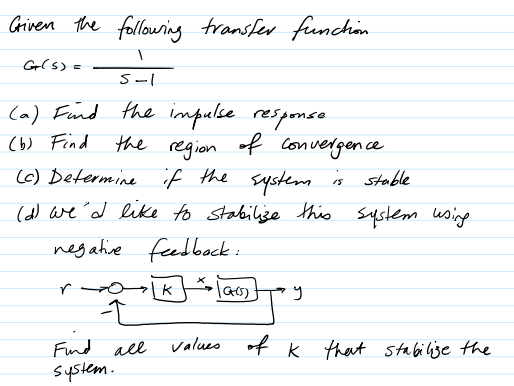 Given the following transfer function
G(s) = 1 / s-1
(a) Find the impulse response
(b) Find the region of convergence
(c) Determine if the system is stable
(d) we'd like to stabilize this system using
negative feedback:
r K x G(s) y
-
Find all values of K that stabilize the
system.